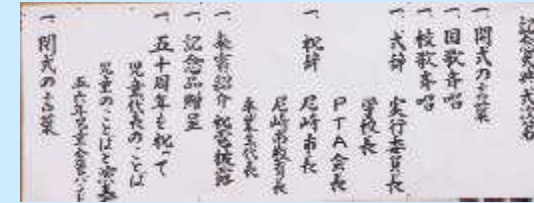 記念式典式次第
一 開式の言葉
一 国歌斉唱
一 校歌斉唱
一 式辞 実行委員長
学校長
PTA会長
一 祝辞 尼崎市長
尼崎市教育長
卒業生代表
一 来賓紹介 祝電披露
一 記念品贈呈
一 五十周年を祝って
児童代表のことば
児童のことばと
一 閉式の言葉